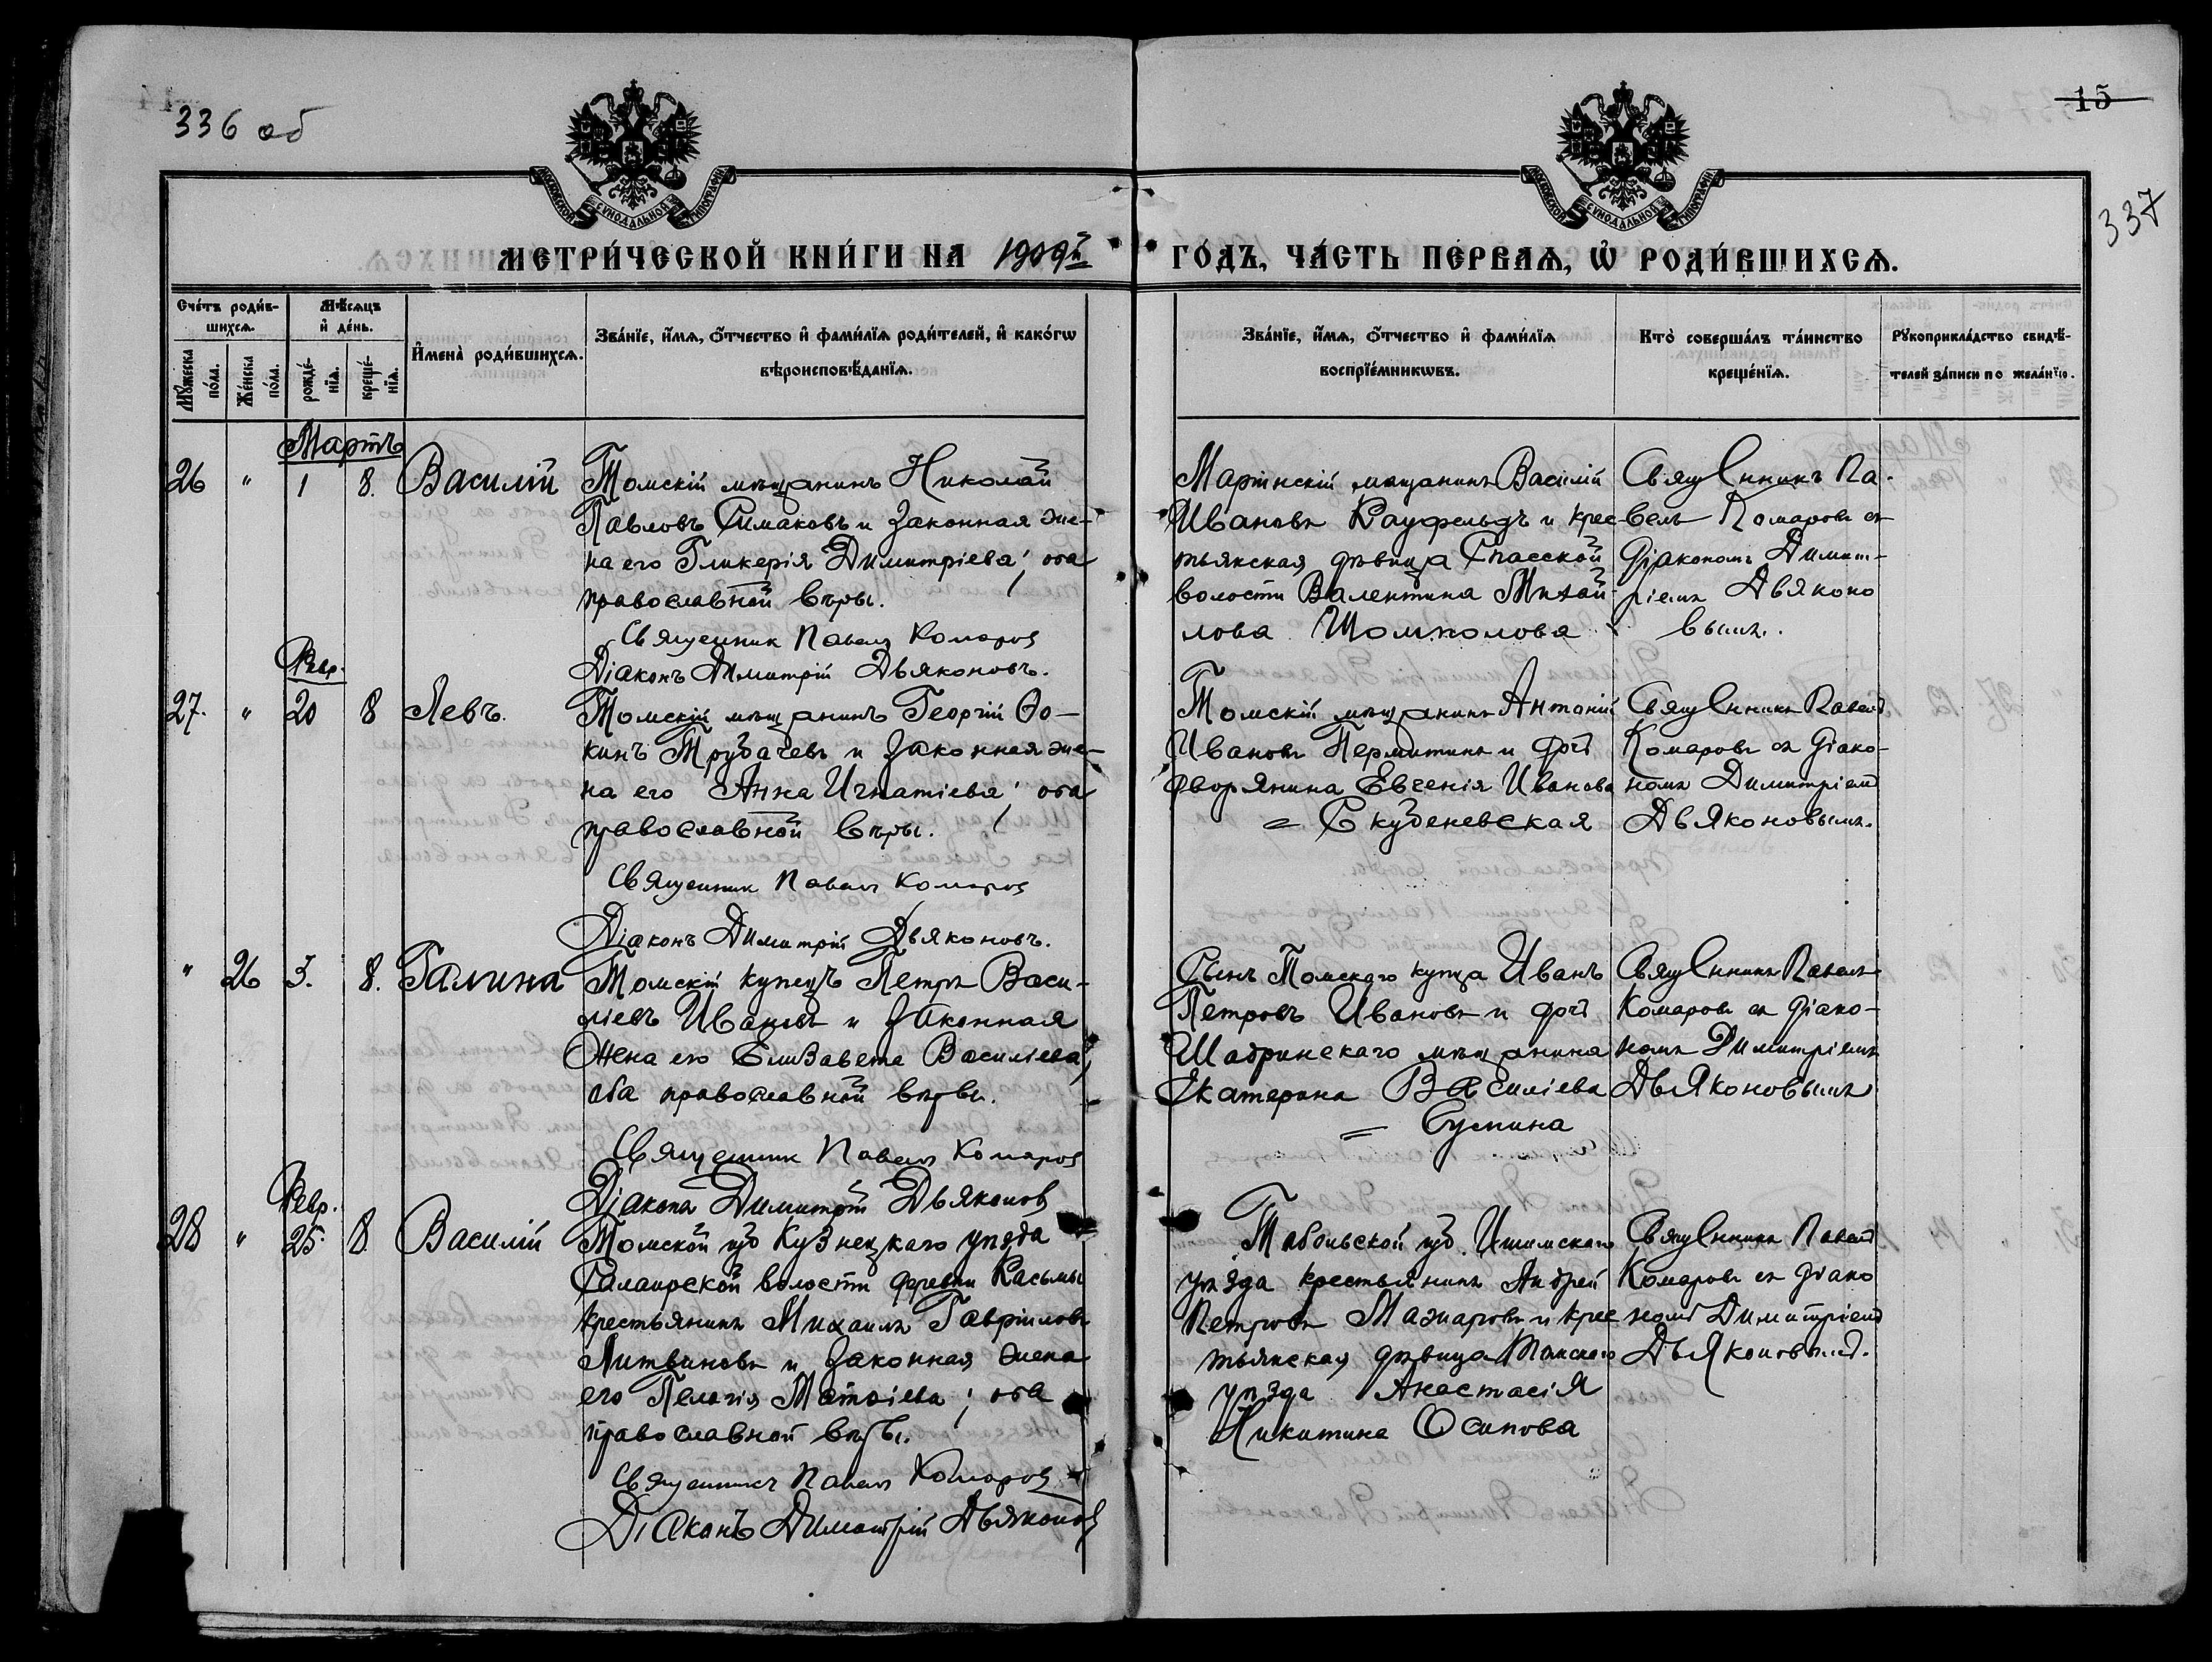 336 об
15
337
МОСКОВСКОЙ СУНОДАЛЬНОЙ ТИПОГРАФІИ
МОСКОВСКОЙ СУНОДАЛЬНОЙ ТИПОГРАФІИ
МЕТРИ́ЧЕСКОЙ КНИ́ГИ НА 1909й ГО́ДЪ, ЧА́СТЬ ПЕ́РВАѦ, Ѡ҆ РОДИ́ВШИХСѦ.
Сче́тъ роди́в-
шихсѧ.
Мѣ́сѧцъ
и҆ де́нь.
Мꙋ́жеска
по́ла.
Же́нска
по́ла.
рожде́-
нїѧ.
креще́-
нїѧ.
И҆мена̀ роди́вшихсѧ.
Зва́нїе, и҆́мѧ, ѻ҆́тчество и҆ фами́лїѧ роди́телей, и҆ како́гѡ
вѣроисповѣ́данїѧ.
Зва́нїе, и҆́мѧ, ѻ҆́тчество и҆ фами́лїѧ
воспрїе́мникѡвъ.
Кто̀ соверша́лъ та́инство
креще́нїѧ.
Рꙋкоприкла́дство свидѣ́-
телей за́писи по жела́нїю.
Мартъ
26 " 1 8. Василій
Томскій мѣщанинъ Николай
Павловъ Симаковъ и законная же-
на его Гликерія Димитріева; оба
православной вѣры.
Священник Павелъ Комаров
Діаконъ Димитрій Дьяконовъ.
Маріинскій мѣщанинъ Василій
Ивановъ Кауфельдъ и крес
тьянская дѣвица Спасской
волости Валентина Михай
лова Шомполова
Священникъ Па-
велъ Комаровъ съ
діакономъ Димит-
ріемъ Дьяконо
вымъ.
Февр.
27. " 20 8 Левъ.
Томскій мѣщанинъ Георгій Фо-
кинъ Трубачевъ и законная же-
на его Анна Игнатіева; оба
православной вѣры.
Священник Павелъ Комаров
Діаконъ Димитрій Дьяконовъ.
Томскій мѣщанинъ Антоній
Ивановъ Пермитинъ и дочь
дворянина Евгенія Иванова
= Скуденевская
Священникъ Павелъ
Комаровъ съ діако-
номъ Димитріемъ
Дьяконовымъ.
" 26 3. 8. Галина
Томскій купецъ Петръ Васи-
ліевъ Ивановъ и законная
жена его Елизавета Василіева;
оба православной вѣры.
Священник Павелъ Комаров
Діаконъ Димитрій Дьяконов
Сынъ Томскаго купца Иванъ
Петровъ Ивановъ и дочь
Шадринскаго мѣщанина
Екатерина Василіева
=
Священникъ Павелъ
Комаровъ съ діако-
номъ Димитріемъ
Дьяконовымъ
Февр.
28 " 25. 8. Василій
Томской губ Кузнецкаго уѣзда
Салаирской волости деревни Касьмы
крестьянинъ Михаилъ Гавріиловъ
Литвиновъ и законная жена
его Пелагія Матѳіева; оба
православной вѣры.
Священникъ Павелъ Комаров
Діаконъ Димитрій Дьяконов
Тобольской губ. Ишимскаго
уѣзда крестьянинъ Андрей
Петровъ Мажаровъ и крес
тьянская дѣвица Томскаго
уѣзда Анастасія
Никитина Осипова
Священникъ Павелъ
Комаровъ съ діако
номъ Димитріемъ
Дьяконовымъ.